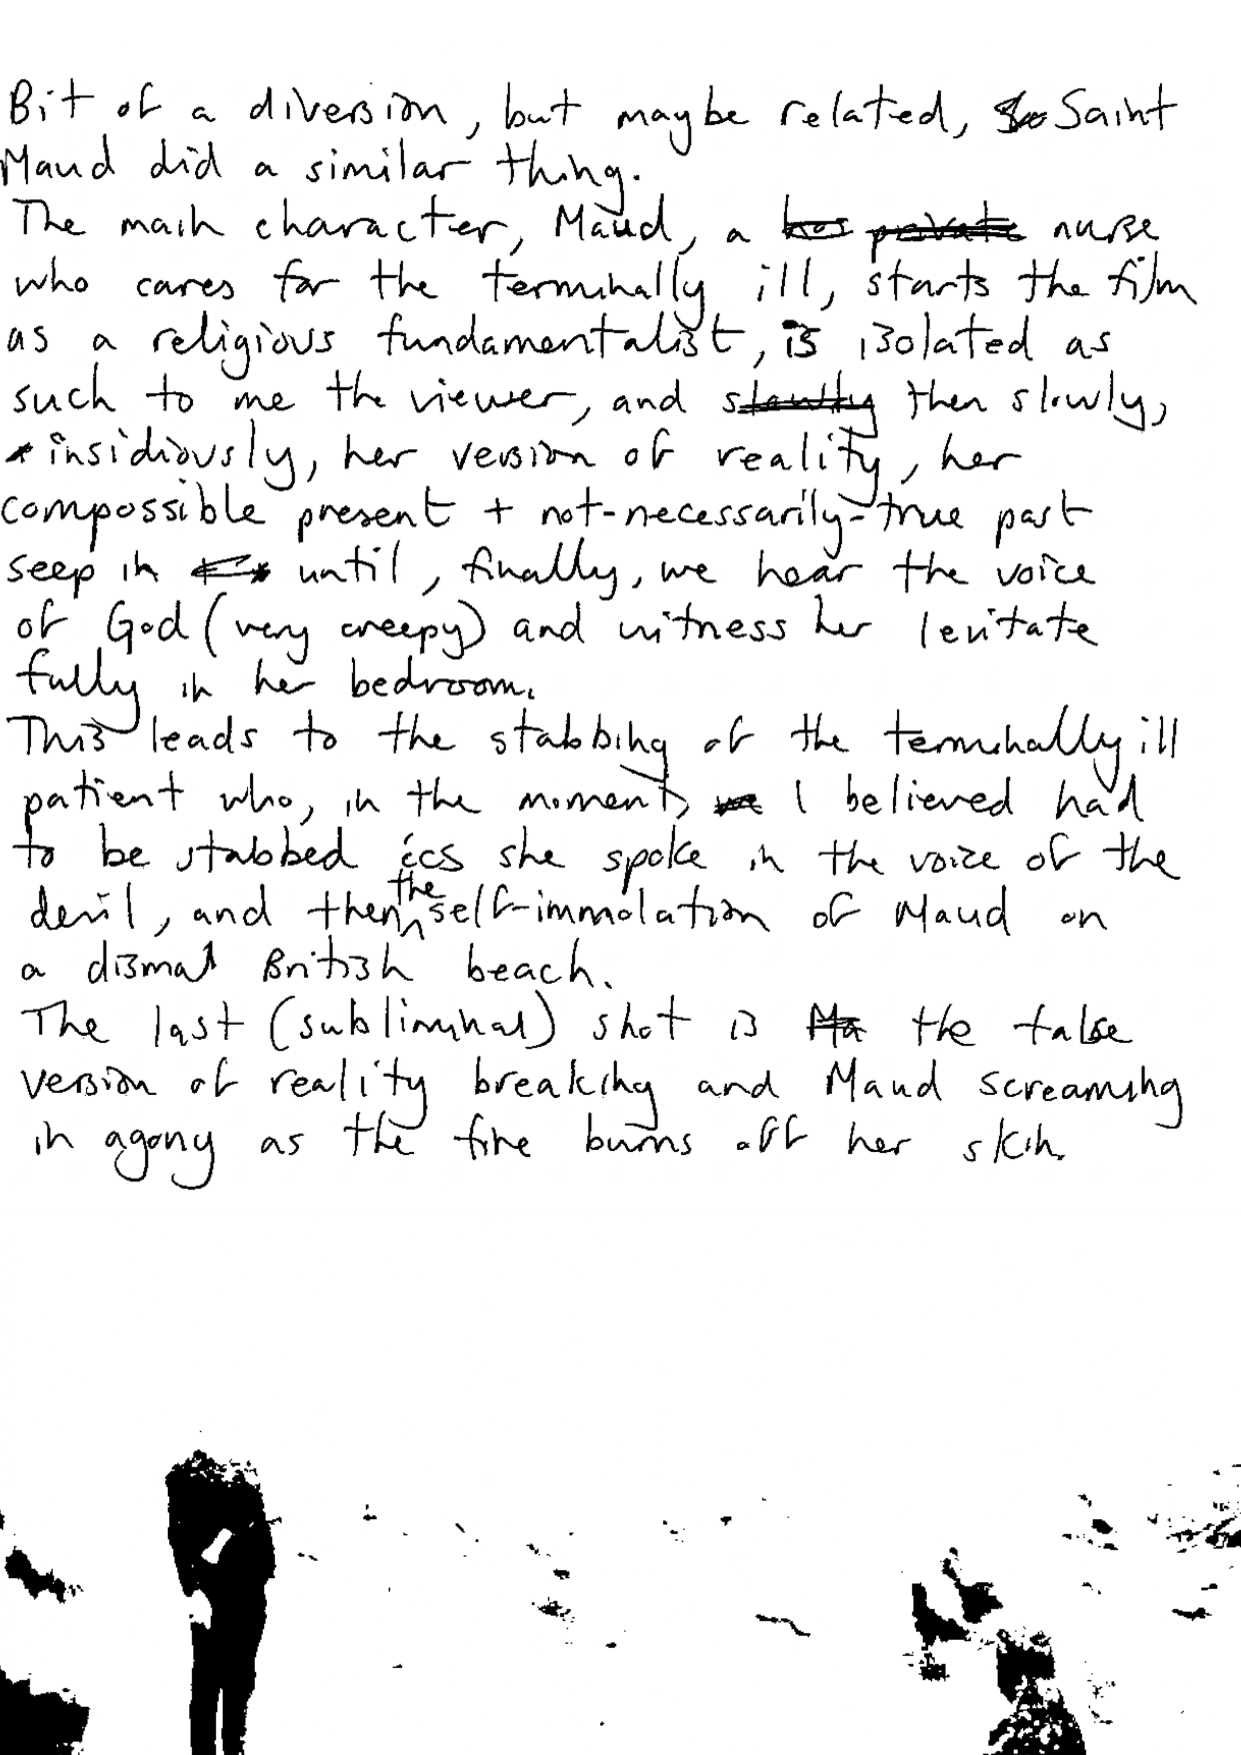 Bit of a diversion, but maybe related, Saint
Maud did a similar thing.
The main character, Maud, a has private nurse
who cares for the terminally ill, starts the film
as a religious fundamentalist, is isolated as
such to me the viewer, and then slowly,
insidiously, her version of reality, her
compossible present + not-necessarily-true past
seep in until, finally, we hear the voice
of God (very creepy) and witness her levitate
fully in her bedroom.
This leads to the stabbing of the terminally ill
patient who, in the moment, we I believed had
to be stabbed as she spoke in the voice of the
devil, and then the self-immolation of Maud on
a dismal British beach.
The last (subliminal) shot is Ma the false
version of reality breaking and Maud screaming
in agony as the fire burns off her skin.